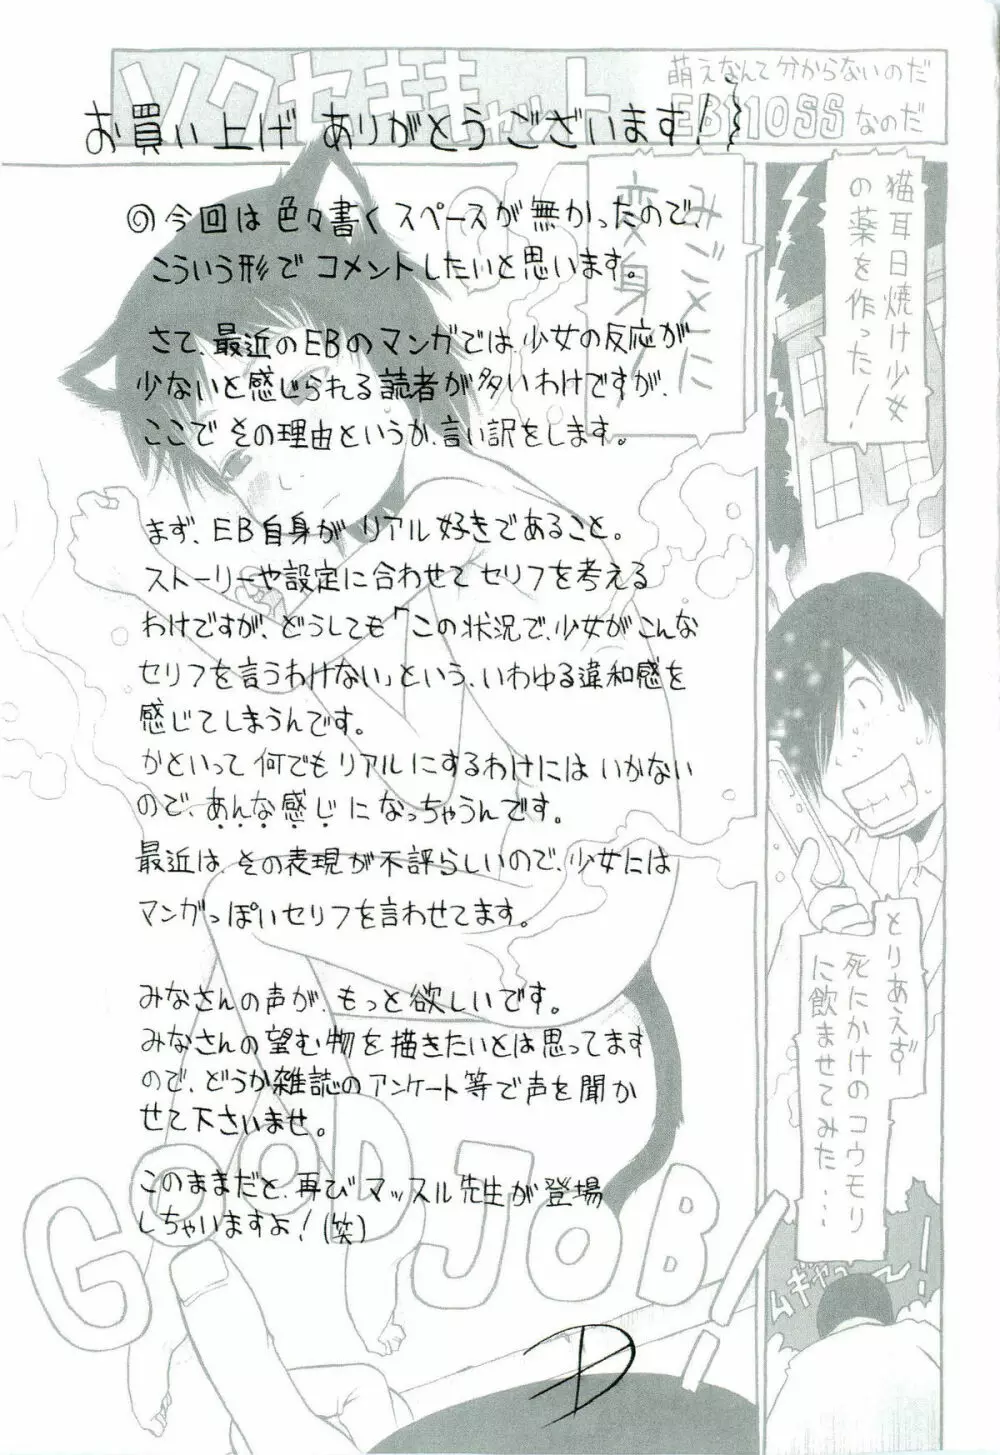 ソクセキキャット
萌えなんて分からないのだ
EB110SSなのだ
お買い上げ ありがとうございます!
◎今回は色々書くスペースが無かったので、
こういう形でコメントしたいと思います。
さて、最近のEBのマンガでは、少女の反応が
少ないと感じられる読者が多いわけですが、
ここで その理由というか、言い訳をします。
まず、EB自身がリアル好きであること。
ストーリーや設定に合わせてセリフを考える
わけですが、どうしても「この状況で、少女がこんな
セリフを言うわけない」という、いわゆる違和感を
感じてしまうんです。
かといって何でもリアルにするわけにはいかない
ので、あんな感じになっちゃうんです。
最近は、その表現が不評らしいので、少女には
マンガっぽいセリフを言わせてます。
みなさんの声が、もっと欲しいです。
みなさんの望む物を描きたいとは思ってます
ので、どうか雑誌のアンケート等で声を聞か
せて下さいませ。
このままだと、再びマッスル先生が登場
しちゃいますよ!(笑)
猫耳日焼け少女
の薬を作った!
とりあえず
死にかけのコウモリ
に飲ませてみた…
ムギャー!
みごとに
変身!
GOOD JOB!!